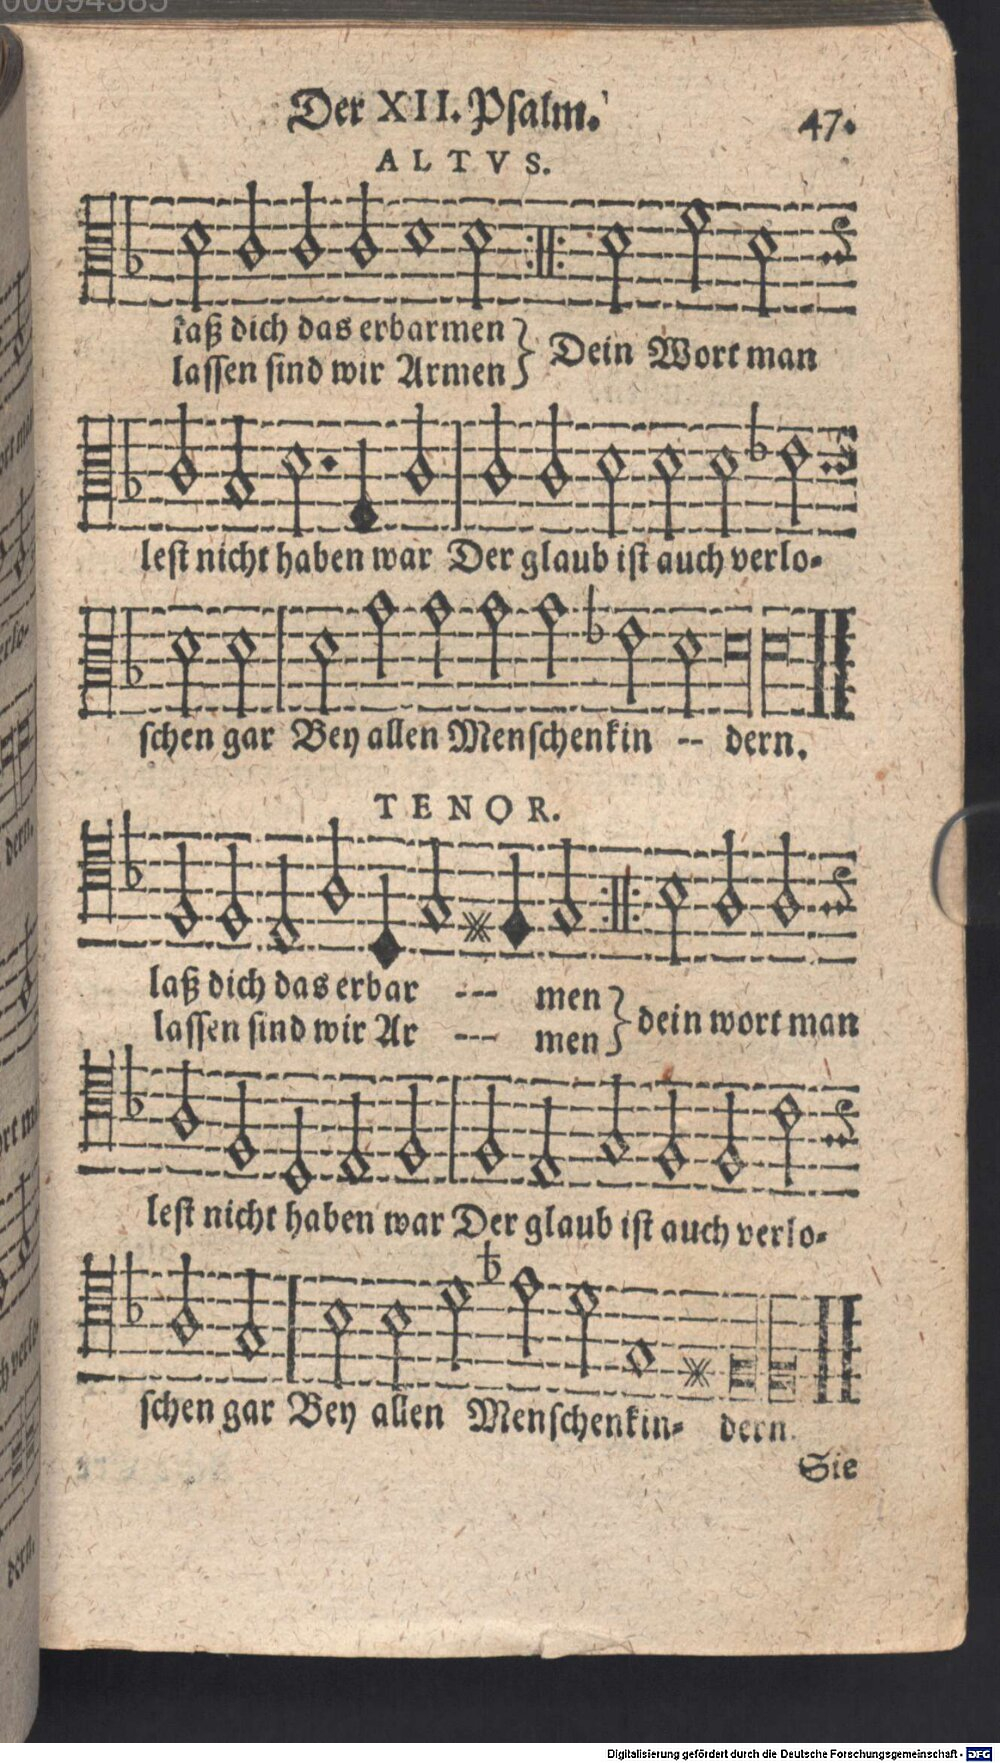 00094385
Der XII. Psalm.
47.
ALTVS.
laß dich das erbarmen
lassen sind wir Armen
Dein Wort man
lest nicht haben war Der glaub ist auch verlo-
schen gar Bey allen Menschenkin -- dern.
TENOR.
laß dich das erbar --- men
lassen sind wir Ar --- men
dein wort man
lest nicht haben war Der glaub ist auch verlo-
schen gar Bey allen Menschenkin- dern.
Sie
Digitalisierung gefördert durch die Deutsche Forschungsgemeinschaft - DFG